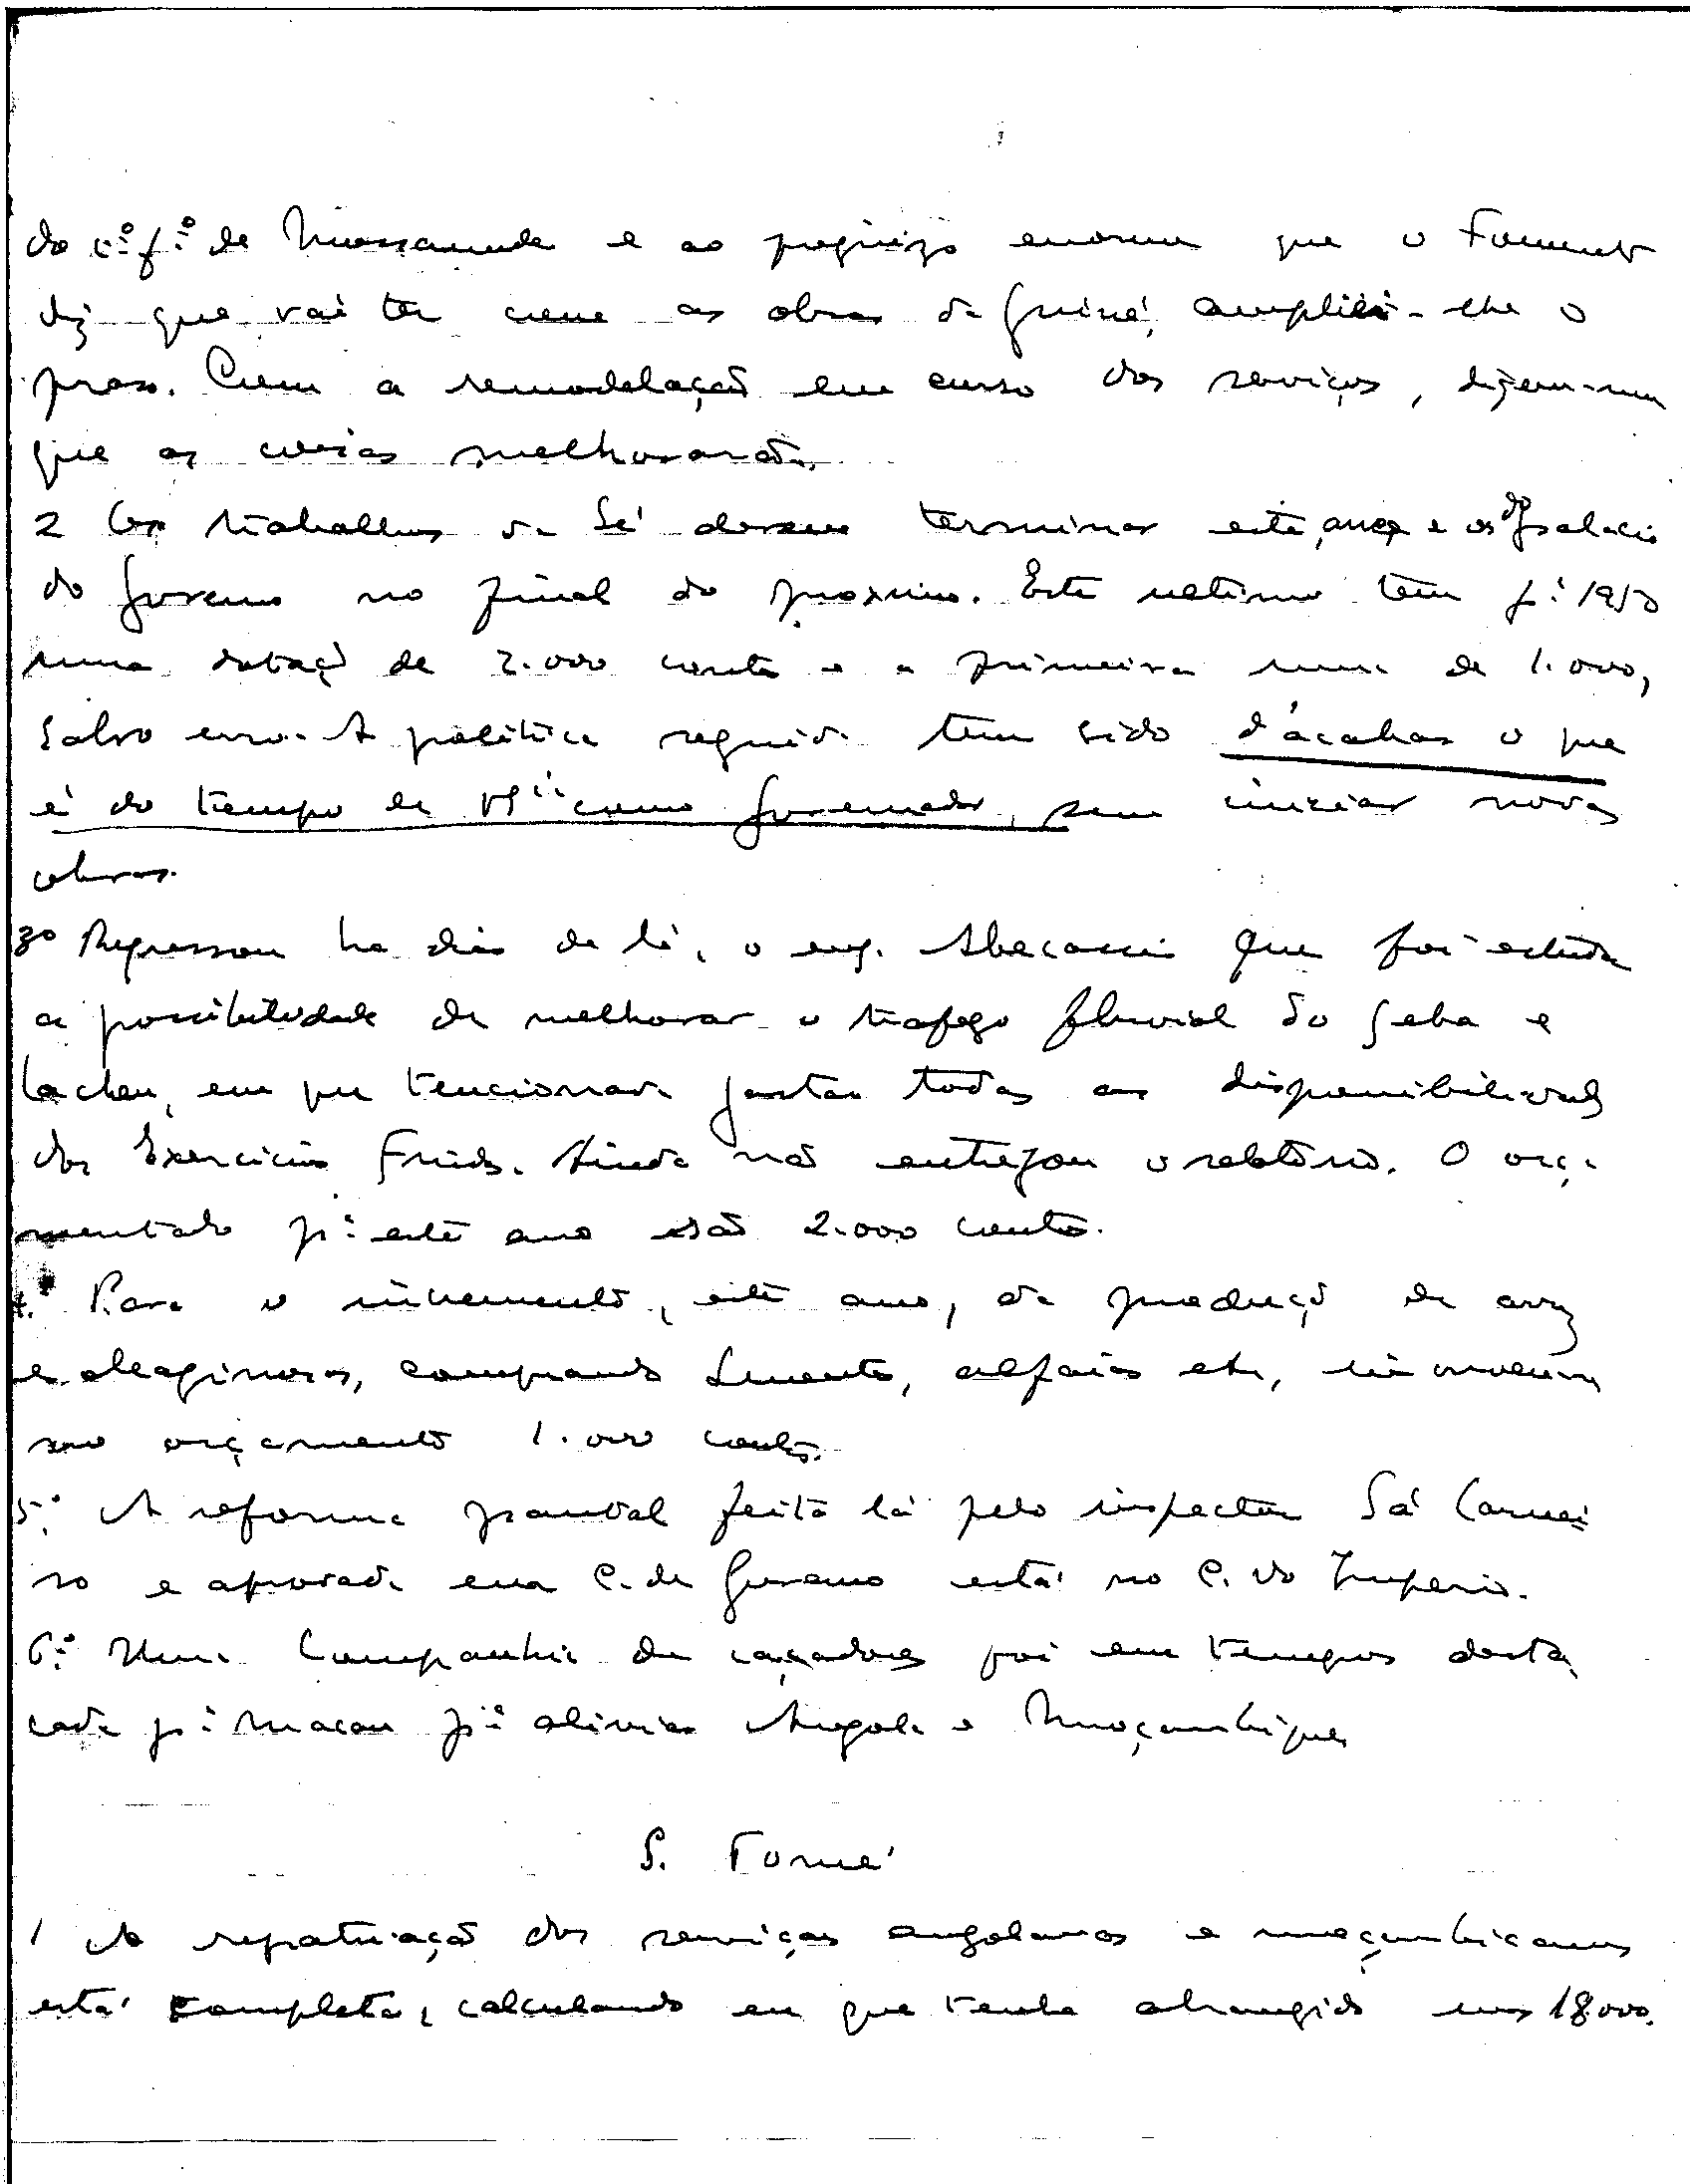 do c.º f.º de Mossamedes e ao prejuizo enorme que o Fomento
diz que vai ter com as obras da Guiné, ampliei-lhe o
praso. Com a remodelação em curso dos serviços, dizem-me
que as coisas melhorarão.
2 Os trabalhos da Sé devem terminar este ano e os do palacio
do Governo no final do proximo. Este ultimo tem p.ª 1950
uma dotaçõ de 2.000 contos e a primeira uma de 1.000,
salvo erro. A politica seguida tem sido d'acabar o que
é do tempo de como Governador, sem iniciar novas
obras.
3º Regressou ha dias de lá, o eng. Abecassis que foi estudar
a possibilidade de melhorar o trafego fluvial do Geba e
Cacheu, em que tencionava gastar todas as disponibilidades
dos Exercicios Findos. Ainda não entregou o relatorio. O orça
mentado p.ª este ano são 2.000 contos.
4.º Para o incremento, este ano, da produçõ de arroz
e oleaginosas, comprando sementes, alfaias etc,
no orçamento 1.000 contos.
5.º A reforma pautal feita lá pelo inspector Sá Carnei
ro e aprovada em C. de Governo está no C. do Imperio.
6.º Uma Companhia de caçadores foi em tempos desta
cada p.ª Macau p.ª aliviar Angola e Moçambique
S. Tomé
1 A repatriação dos serviçais angolanos e moçambicanos
está completa, calculando eu que tenha abrangido uns 18.000.